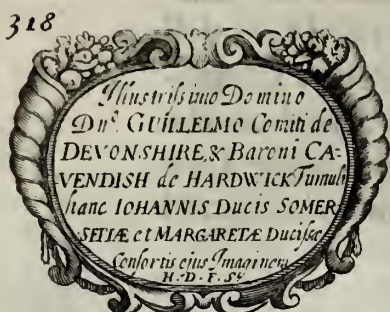 318
Illustrissimo Domino
Dn͠o. GUILLELMO Comiti de
DEVONSHIRE, & Baroni CA-
VENDISH de HARDWICK Tumuli
hanc IOHANNIS Ducis SOMER
SETIÆ et MARGARETÆ Ducissæ
Consortis ejus Imaginem
H. D. F. S.